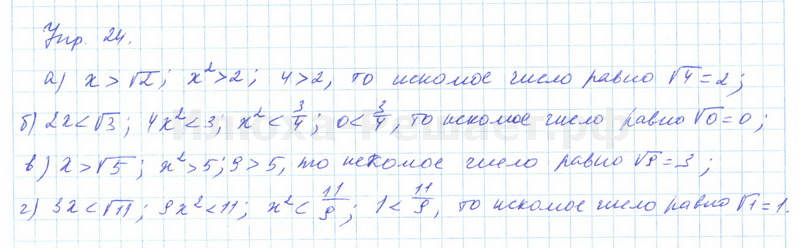 Упр. 24.
а) x > √2; x² > 2; 4 > 2, то искомое число равно √4 = 2;
б) 2x < √3; 4x² < 3; x² < 3/4; 0 < 3/4, то искомое число равно √0 = 0;
в) x > √5; x² > 5; 9 > 5, то искомое число равно √9 = 3;
г) 3x < √11; 9x² < 11; x² < 11/9; 1 < 11/9, то искомое число равно √1 = 1.